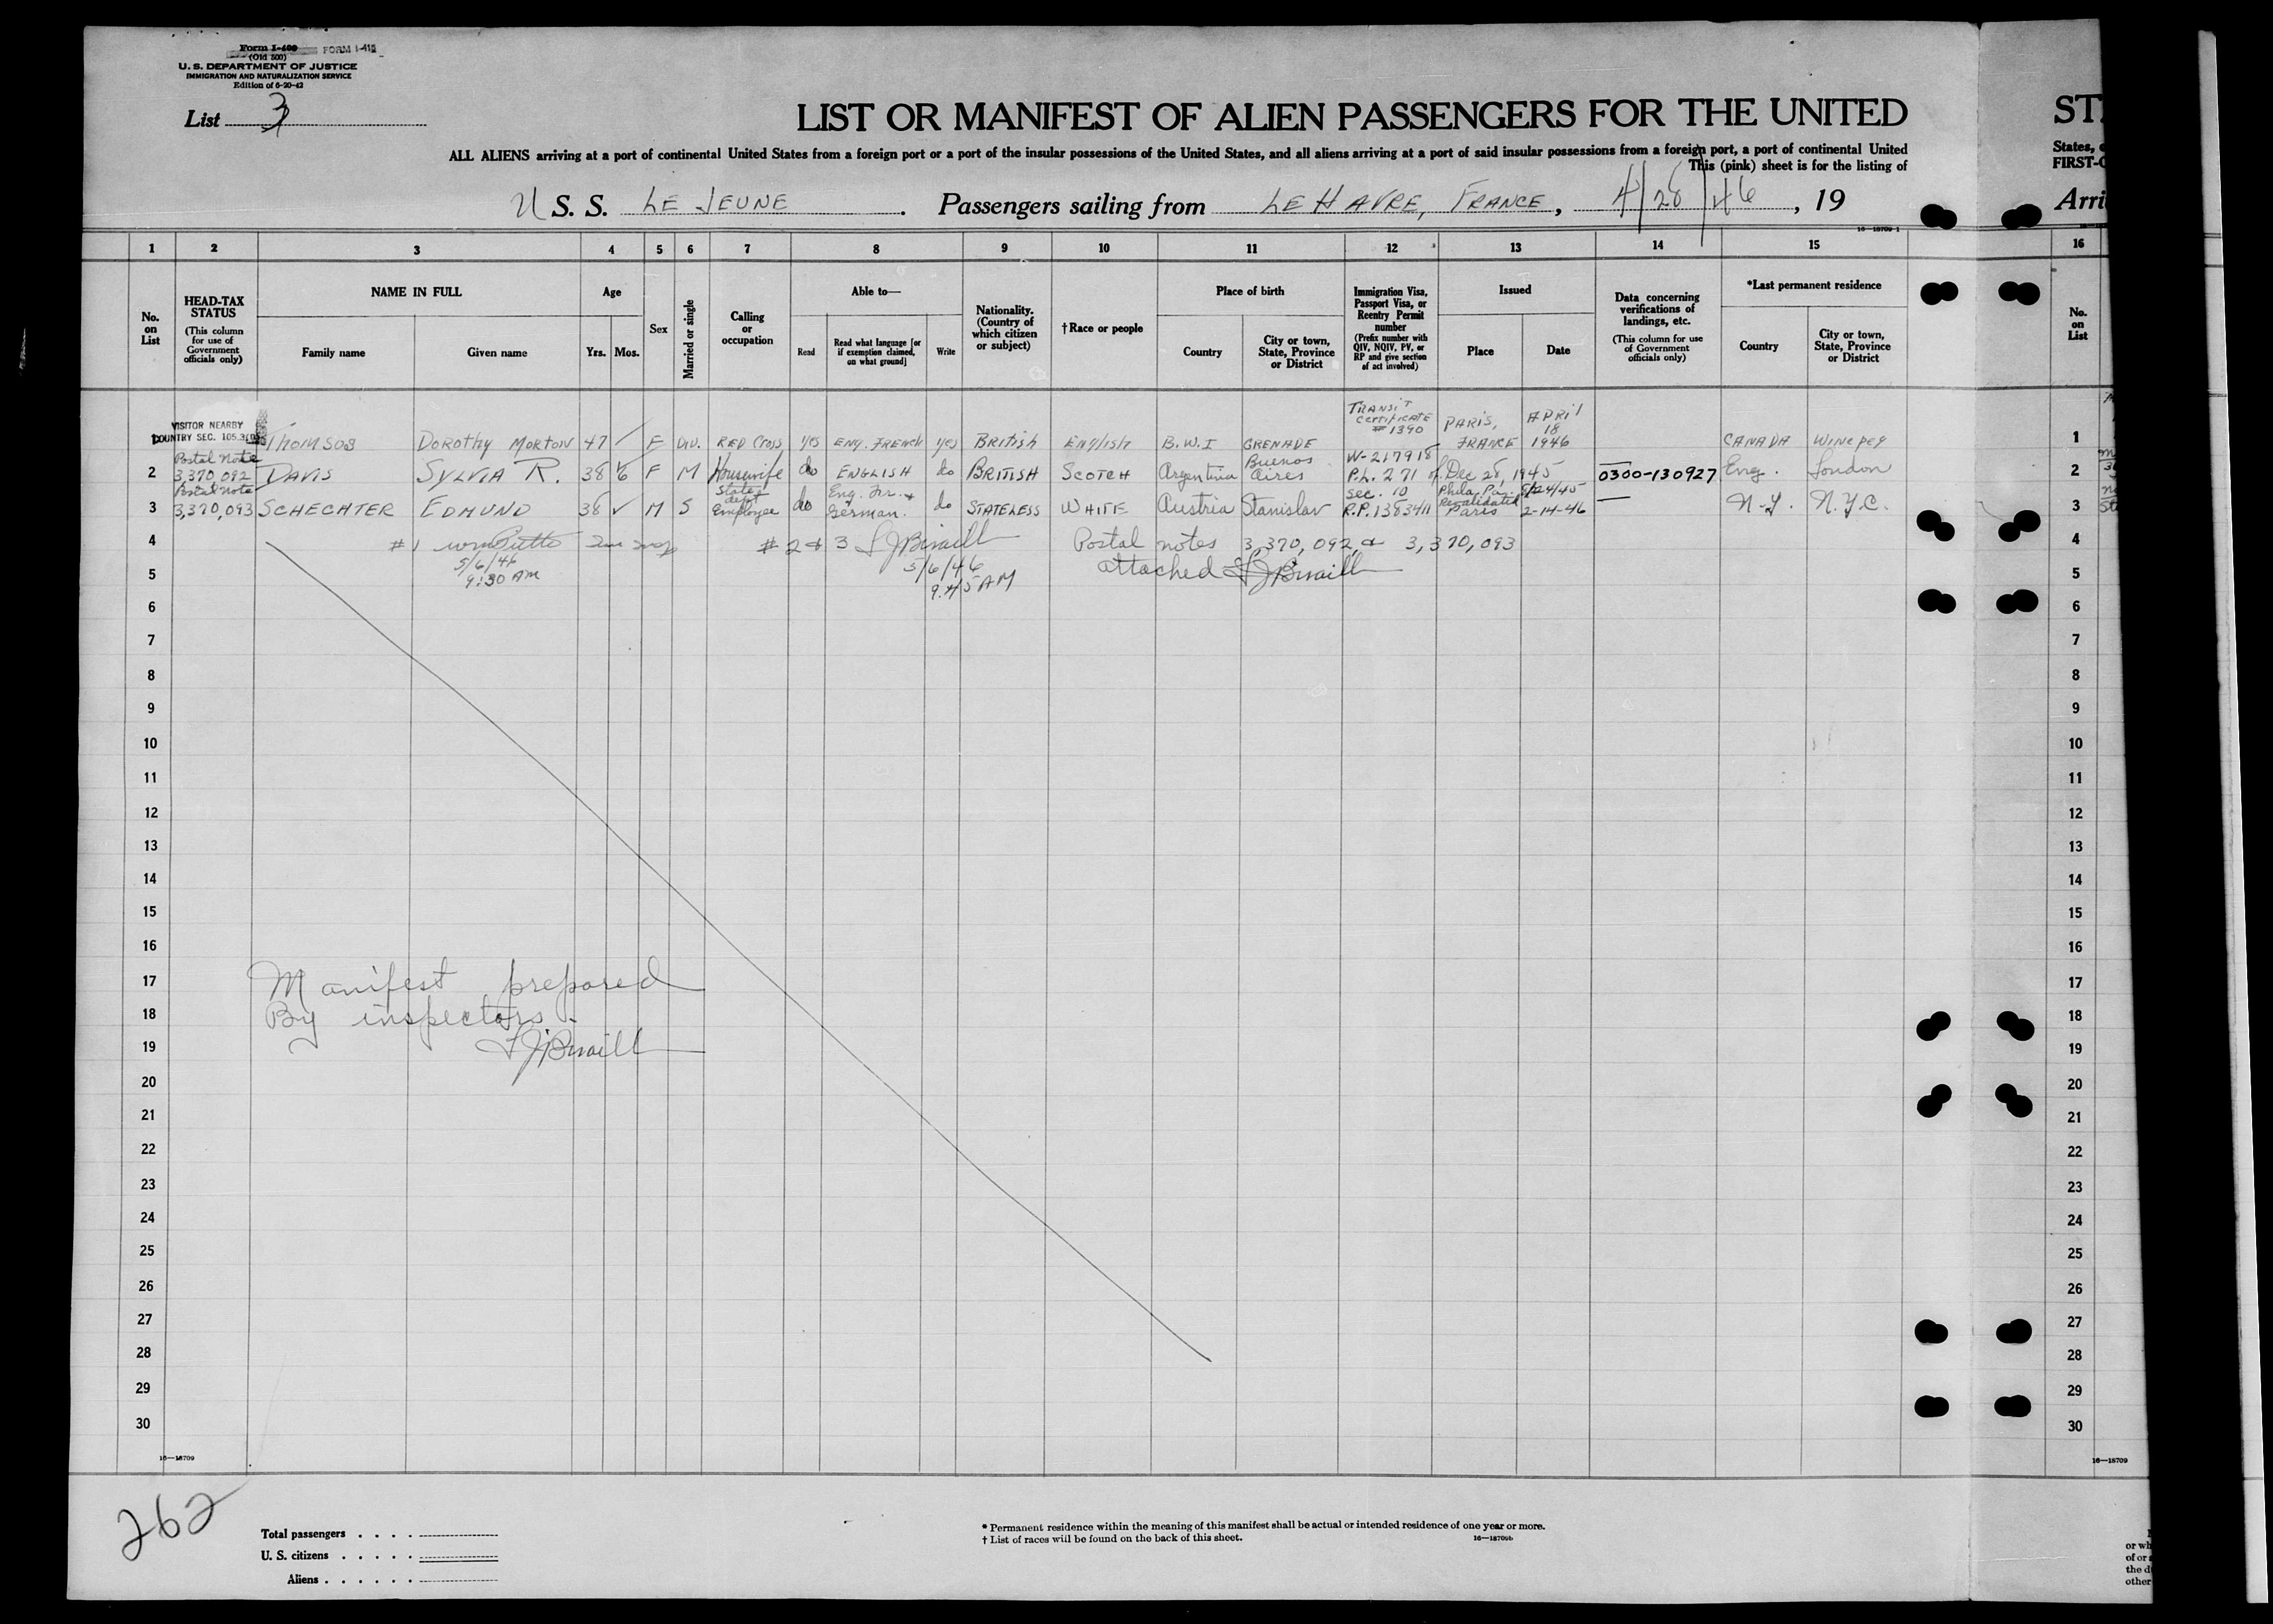 Form I-400 FORM I-415
(Old 500)
U. S. DEPARTMENT OF JUSTICE
IMMIGRATION AND NATURALIZATION SERVICE
Edition of 6-20-42
List 3
LIST OR MANIFEST OF ALIEN PASSENGERS FOR THE UNITED ST
ALL ALIENS arriving at a port of continental United States from a foreign port or a port of the insular possessions of the United States, and all aliens arriving at a port of said insular possessions from a foreign port, a port of continental United States,
This (pink) sheet is for the listing of FIRST-C
U S. S. LE JEUNE . Passengers sailing from LE HAVRE, FRANCE, 4/28/46, 19 Arri
16—18709-1
1 2 3 4 5 6 7 8 9 10 11 12 13 14 15 16
No. on List
HEAD-TAX STATUS (This column for use of Government officials only)
NAME IN FULL Family name Given name
Age Yrs. Mos.
Sex
Married or single
Calling or occupation
Able to— Read Read what language [or if exemption claimed, on what ground] Write
Nationality. (Country of which citizen or subject)
†Race or people
Place of birth Country City or town, State, Province or District
Immigration Visa, Passport Visa, or Reentry Permit number (Prefix number with QIV, NQIV, PV, or RP and give section of act involved)
Issued Place Date
Data concerning verifications of landings, etc. (This column for use of Government officials only)
*Last permanent residence Country City or town, State, Province or District
No. on List
1 VISITOR NEARBY COUNTRY SEC. 105.3 THOMSOB DOROTHY MORTON 47 F DIV. RED CROSS yes ENG. FRENCH yes BRITISH ENGLISH B.W.I GRENADE TRANSIT CERTIFICATE # 1390 PARIS, FRANCE APRIL 18 1946 CANADA WINEPEG 1
2 Postal Note 3,370,092 DAVIS SYLVIA R. 38 6 F M Housewife do ENGLISH do BRITISH SCOTCH Argentina Buenos Aires W-217918 P.L. 271 of Dec 28, 1945 0300-130927 Eng. London 2
3 Postal Note 3,370,093 SCHECHTER EDMUND 38 M S State dept Employee do Eng. Fr. + German. do STATELESS WHITE Austria Stanislav Sec. 10 R.P. 1383411 Phila, Pa. Revalidated Paris 5/24/45 2-14-46 — N.Y. N.Y.C. 3
4 #1 5/6/46 9:30 AM #2 & 3 5/6/46 9.45 AM Postal notes 3,370,092 & 3,370,093 4
5 attached 5
6 6
7 7
8 8
9 9
10 10
11 11
12 12
13 13
14 14
15 15
16 16
17 Manifest prepared 17
18 By inspectors. 18
19 19
20 20
21 21
22 22
23 23
24 24
25 25
26 26
27 27
28 28
29 29
30 30
16—18709 16—18709
262
Total passengers . . . .
U. S. citizens . . . . .
Aliens . . . . . .
* Permanent residence within the meaning of this manifest shall be actual or intended residence of one year or more.
† List of races will be found on the back of this sheet. 16—18709b
or wh
of or a
the d
other